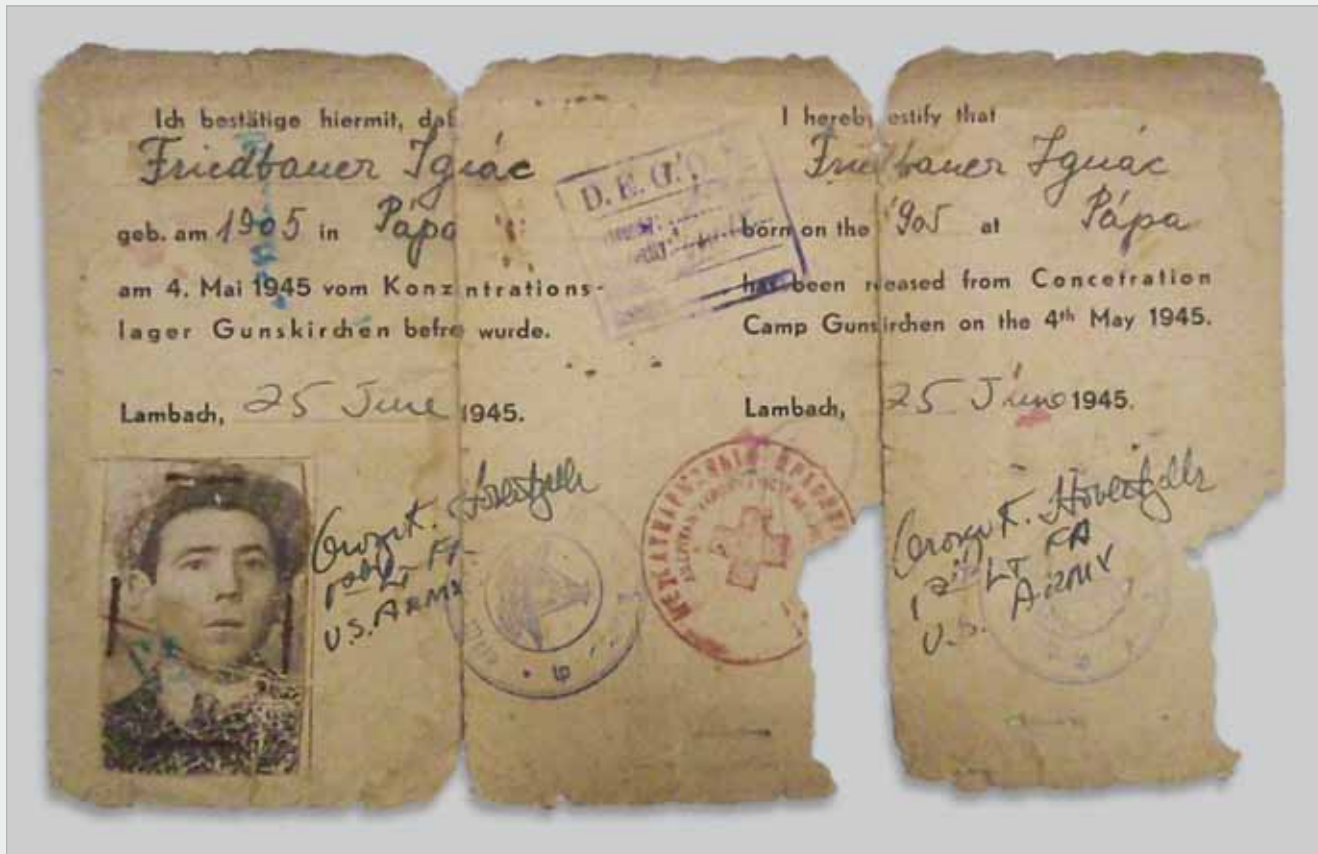 Ich bestätige hiermit, daß
Friedbauer Ignác
geb. am 1905 in Pápa
am 4. Mai 1945 vom Konzentrations-
lager Gunskirchen befre wurde.
Lambach, 25 June 1945.
1st Lt FA
U.S. ARMY
D. E. G.
I hereby estify that
Friedbauer Ignác
born on the 905 at Pápa
has been released from Concetration
Camp Gunskirchen on the 4th May 1945.
Lambach, 25 June 1945.
George K.
1st LT FA
U.S. ARMY